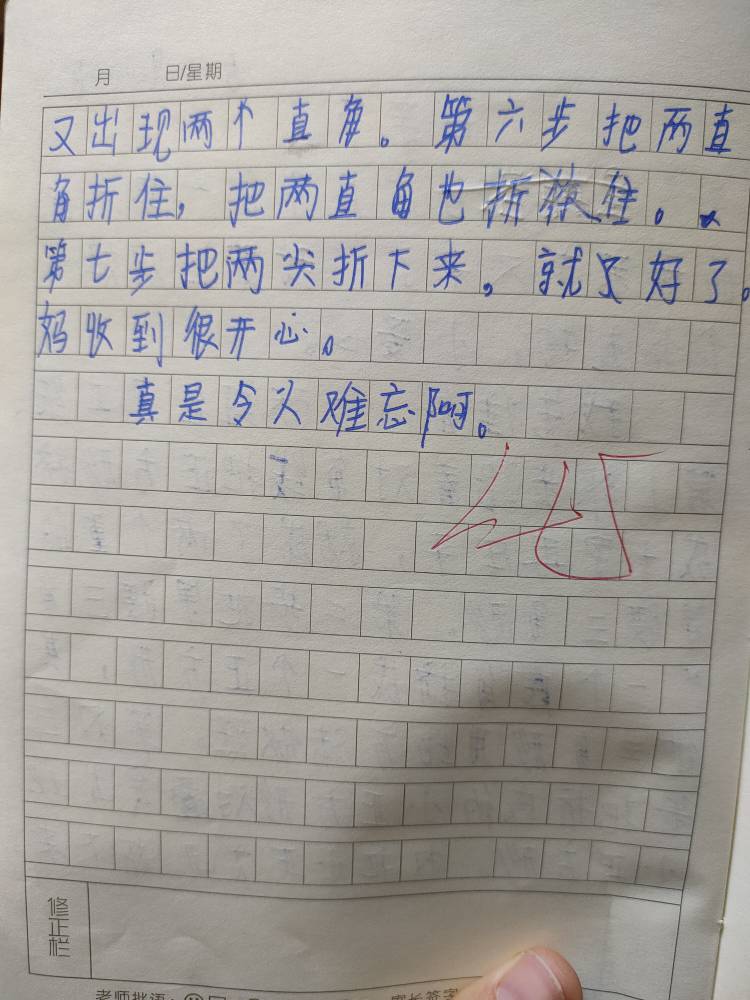 月 日/星期
又出现两个直角。第六步把两直
角折住，把两直角也折住。
第七步把两尖折下来，就又好了。
妈收到很开心。
真是令人难忘啊。
修正栏
老师批语：
家长签字